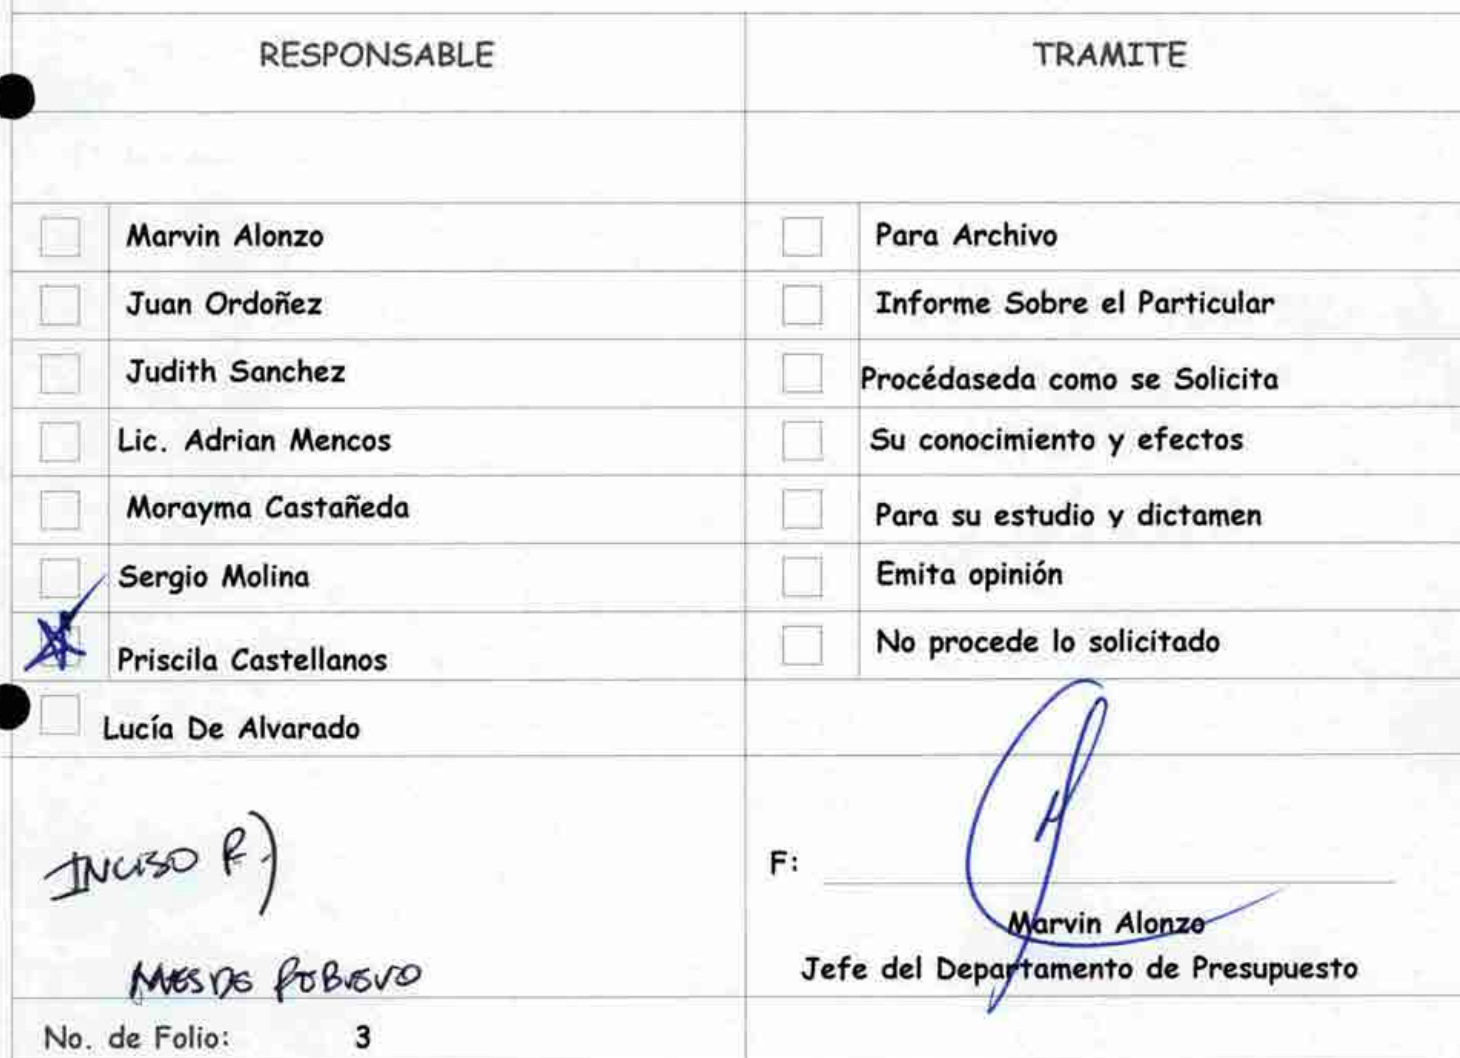 RESPONSABLE
TRAMITE
Marvin Alonzo
Para Archivo
Juan Ordoñez
Informe Sobre el Particular
Judith Sanchez
Procédaseda como se Solicita
Lic. Adrian Mencos
Su conocimiento y efectos
Morayma Castañeda
Para su estudio y dictamen
Sergio Molina
Emita opinión
Priscila Castellanos
No procede lo solicitado
Lucía De Alvarado
INCISO
F:
Marvin Alonzo
MES DE
Jefe del Departamento de Presupuesto
No. de Folio: 3